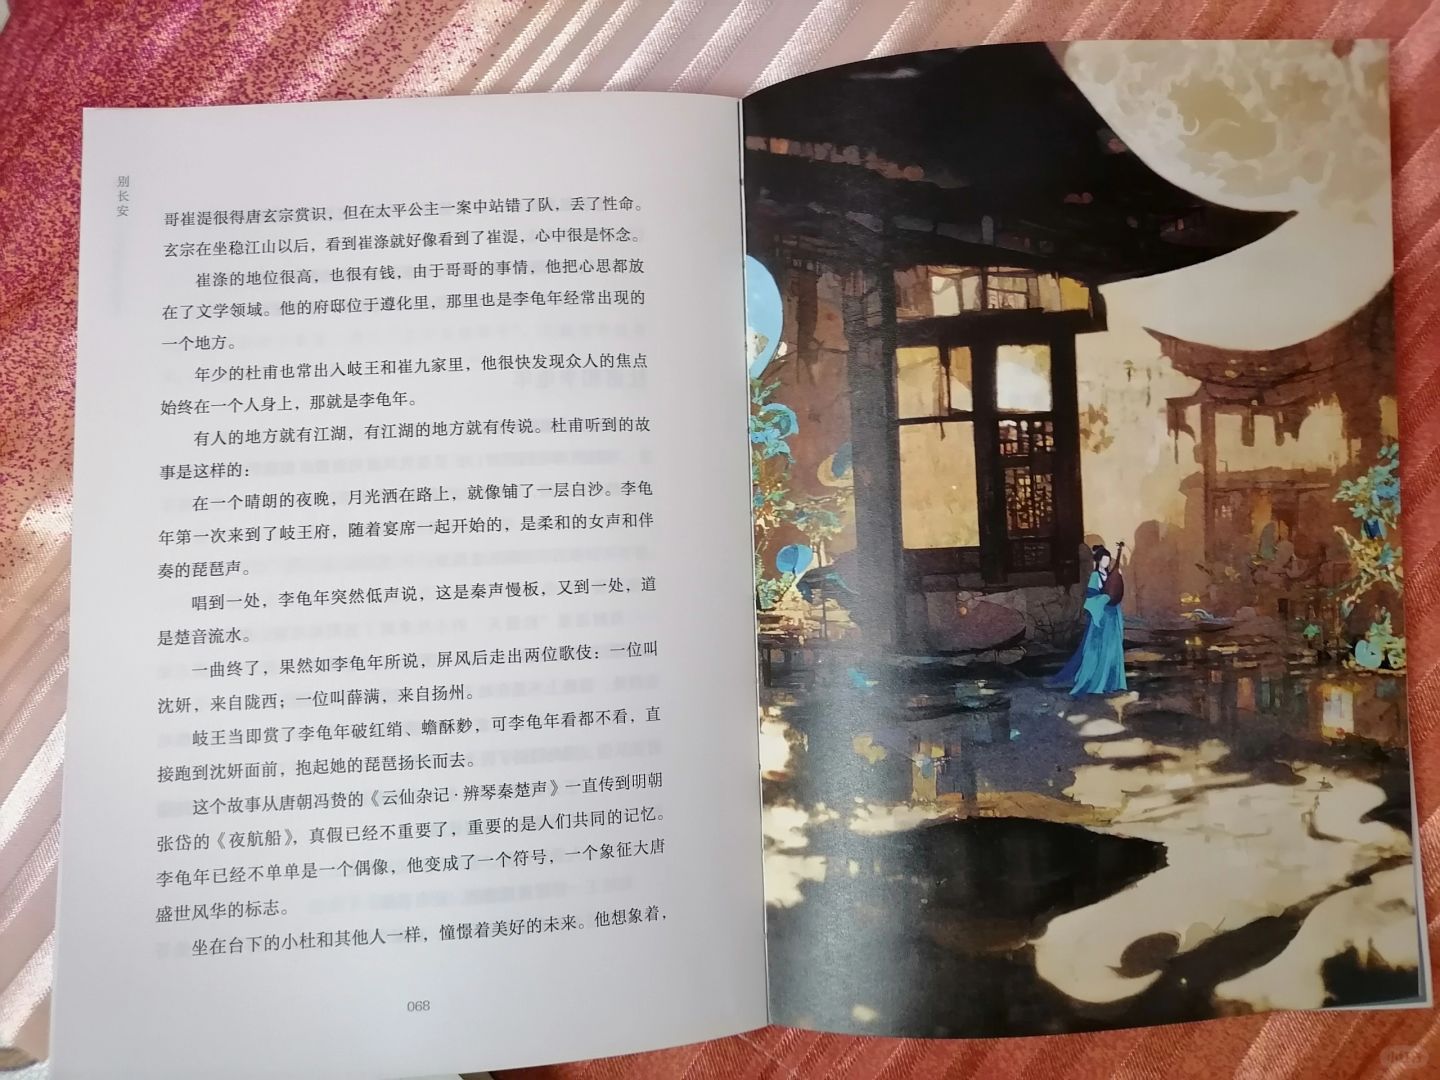 别长安
哥崔湜很得唐玄宗赏识，但在太平公主一案中站错了队，丢了性命。
玄宗在坐稳江山以后，看到崔涤就好像看到了崔湜，心中很是怀念。
崔涤的地位很高，也很有钱，由于哥哥的事情，他把心思都放
在了文学领域。他的府邸位于遵化里，那里也是李龟年经常出现的
一个地方。
年少的杜甫也常出入岐王和崔九家里，他很快发现众人的焦点
始终在一个人身上，那就是李龟年。
有人的地方就有江湖，有江湖的地方就有传说。杜甫听到的故
事是这样的：
在一个晴朗的夜晚，月光洒在路上，就像铺了一层白沙。李龟
年第一次来到了岐王府，随着宴席一起开始的，是柔和的女声和伴
奏的琵琶声。
唱到一处，李龟年突然低声说，这是秦声慢板，又到一处，道
是楚音流水。
一曲终了，果然如李龟年所说，屏风后走出两位歌伎：一位叫
沈妍，来自陇西；一位叫薛满，来自扬州。
岐王当即赏了李龟年破红绡、蟾酥麨，可李龟年看都不看，直
接跑到沈妍面前，抱起她的琵琶扬长而去。
这个故事从唐朝冯贽的《云仙杂记·辨琴秦楚声》一直传到明朝
张岱的《夜航船》，真假已经不重要了，重要的是人们共同的记忆。
李龟年已经不单单是一个偶像，他变成了一个符号，一个象征大唐
盛世风华的标志。
坐在台下的小杜和其他人一样，憧憬着美好的未来。他想象着，
068
小红书